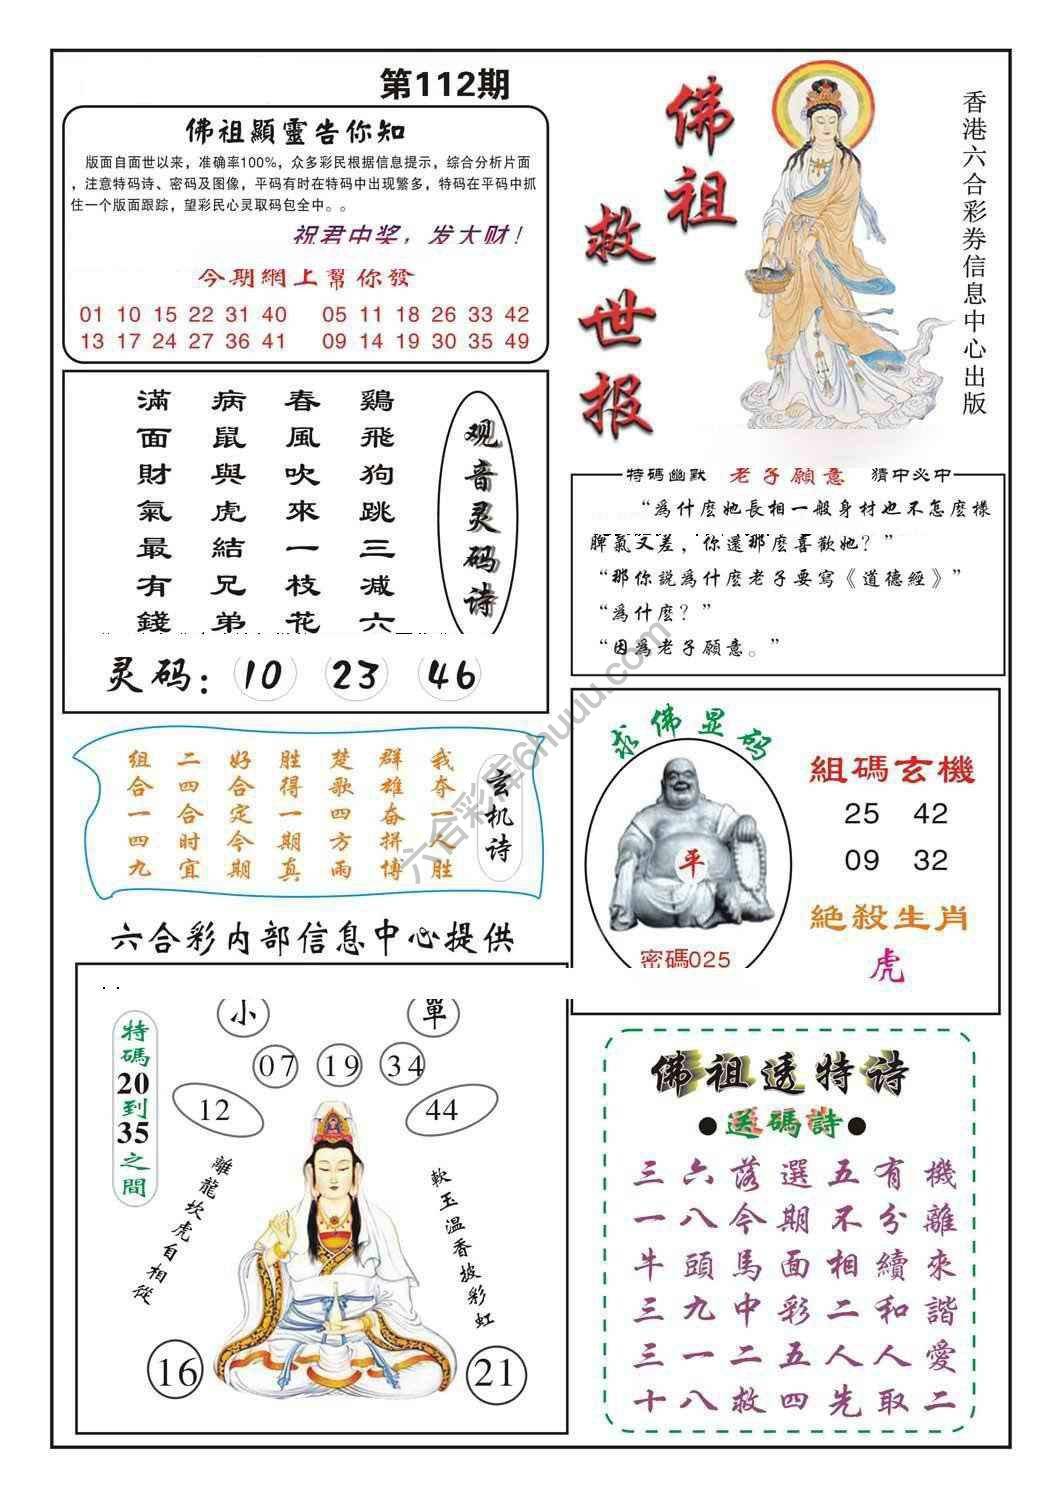 第112期
佛祖顯靈告你知
版面自面世以来，准确率100%，众多彩民根据信息提示，综合分析片面
，注意特码诗、密码及图像，平码有时在特码中出现繁多，特码在平码中抓
住一个版面跟踪，望彩民心灵取码包全中。。
祝君中奖，发大财！
今期網上幫你發
01 10 15 22 31 40 05 11 18 26 33 42
13 17 24 27 36 41 09 14 19 30 35 49
佛祖
救世报
香港六合彩券信息中心出版
观音灵码诗
鷄飛狗跳三減六
春風吹來一枝花
病鼠與虎結兄弟
滿面財氣最有錢
灵码：10 23 46
特碼幽默 老子願意 猜中必中
“爲什麽她長相一般身材也不怎麽樣
脾氣又差，你還那麽喜歡她？”
“那你說爲什麽老子要寫《道德經》”
“爲什麽？”
“因爲老子願意。”
玄机诗
我夺一个胜
群雄奋拼博
楚歌四方雨
胜得一期真
好合定今期
二四合时宜
组合一四九
求佛显码
平
密碼025
組碼玄機
25 42
09 32
絕殺生肖
虎
六合彩内部信息中心提供
小 單
07 19 34
12 44
特碼20到35之間
離龍坎虎自相從
軟玉温香披彩虹
16 21
佛祖透特诗
●送碼詩●
三六落選五有機
一八今期不分離
牛頭馬面相續來
三九中彩二和諧
三一二五人人愛
十八救四先取二
六合彩库6huuu.com